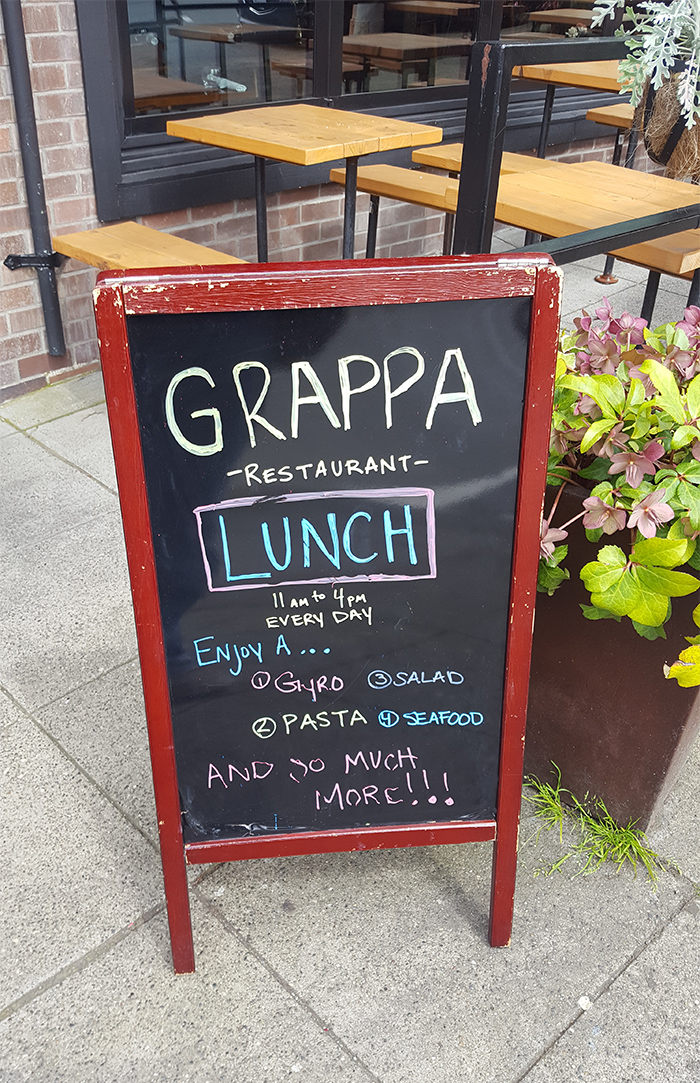 GRAPPA
-RESTAURANT-
LUNCH
11 AM to 4 PM
EVERY DAY
ENJOY A...
① GYRO ③ SALAD
② PASTA ④ SEAFOOD
AND SO MUCH
MORE!!!